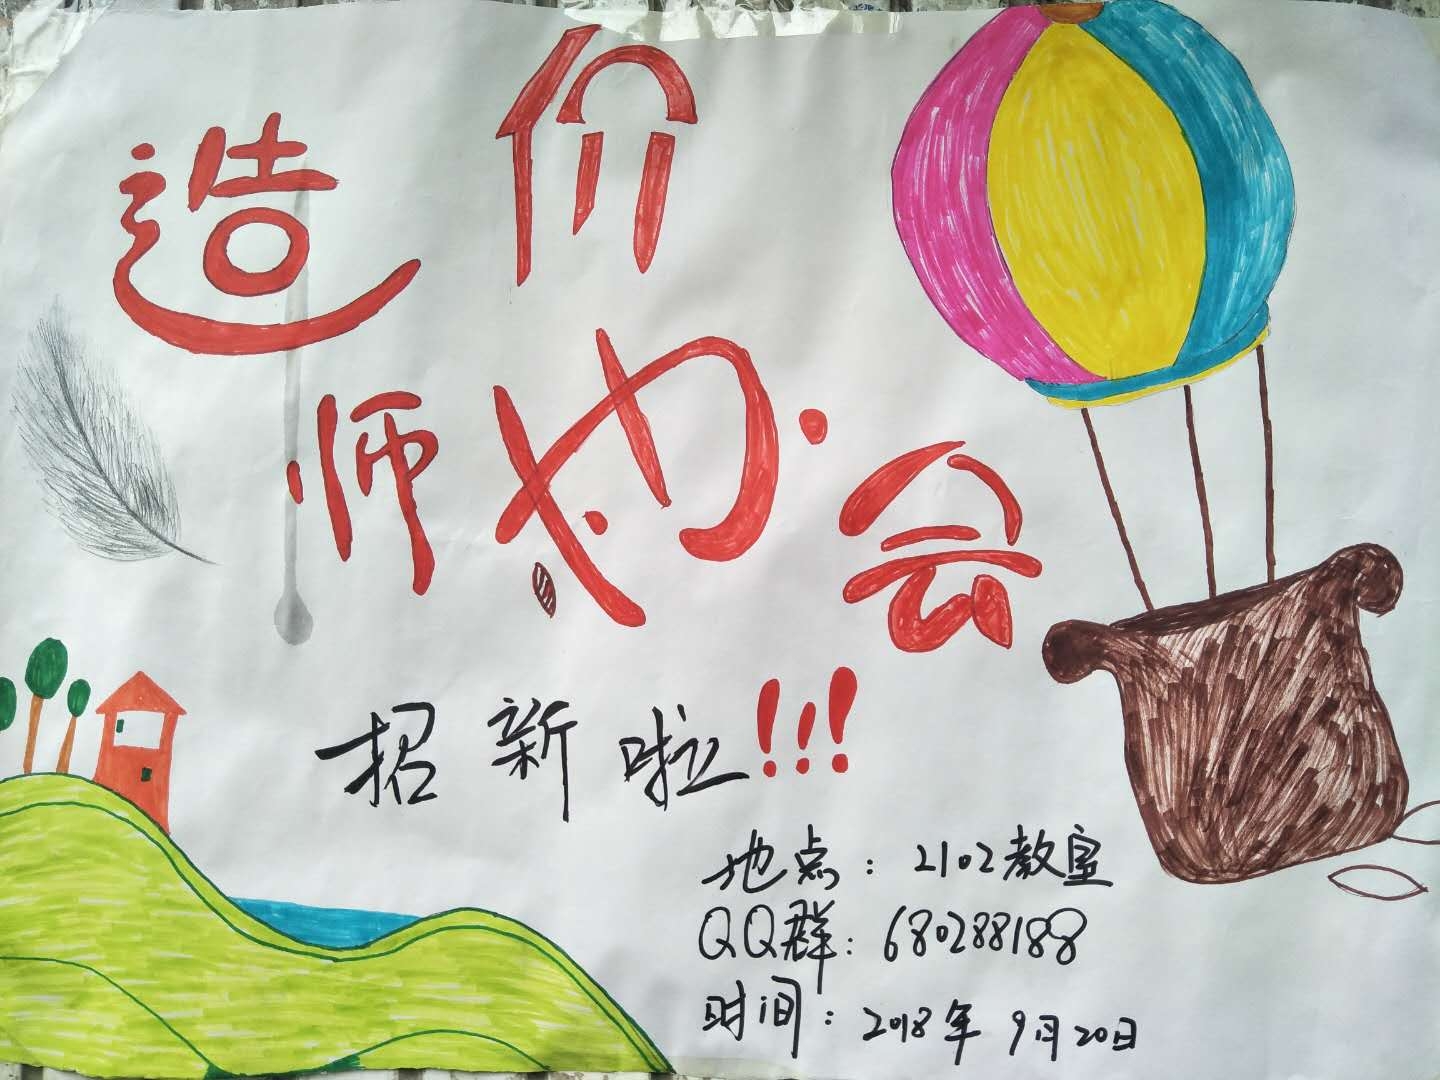 造价
师协会
招新啦!!!
地点：2102教室
QQ群：680288188
时间：2018年9月20日